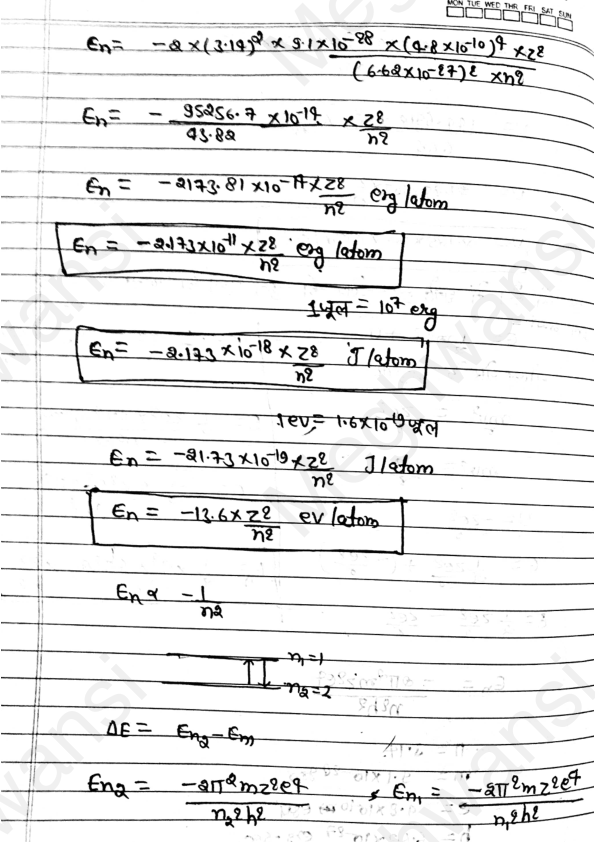 MON TUE WED THR FRI SAT SUN
En = -2 × (3.14)² × 9.1 × 10⁻²⁸ × (4.8 × 10⁻¹⁰)⁴ × z² / (6.62 × 10⁻²⁷)² × n²
En = - 95256.7 × 10⁻¹⁴ / 43.82 × z²/n²
En = -2173.81 × 10⁻¹⁴ × z²/n² erg/atom
En = -2.173 × 10⁻¹¹ × z²/n² erg/atom
1 जूल = 10⁷ erg
En = -2.173 × 10⁻¹⁸ × z²/n² J/atom
1ev = 1.6 × 10⁻¹⁹ जूल
En = -21.73 × 10⁻¹⁹ × z²/n² J/atom
En = -13.6 × z²/n² ev/atom
En ∝ - 1/n²
n₁=1
n₂=2
ΔE = En₂ - En₁
En₂ = -2π²mz²e⁴ / n₂²h² , En₁ = -2π²mz²e⁴ / n₁²h²
Meghwansi